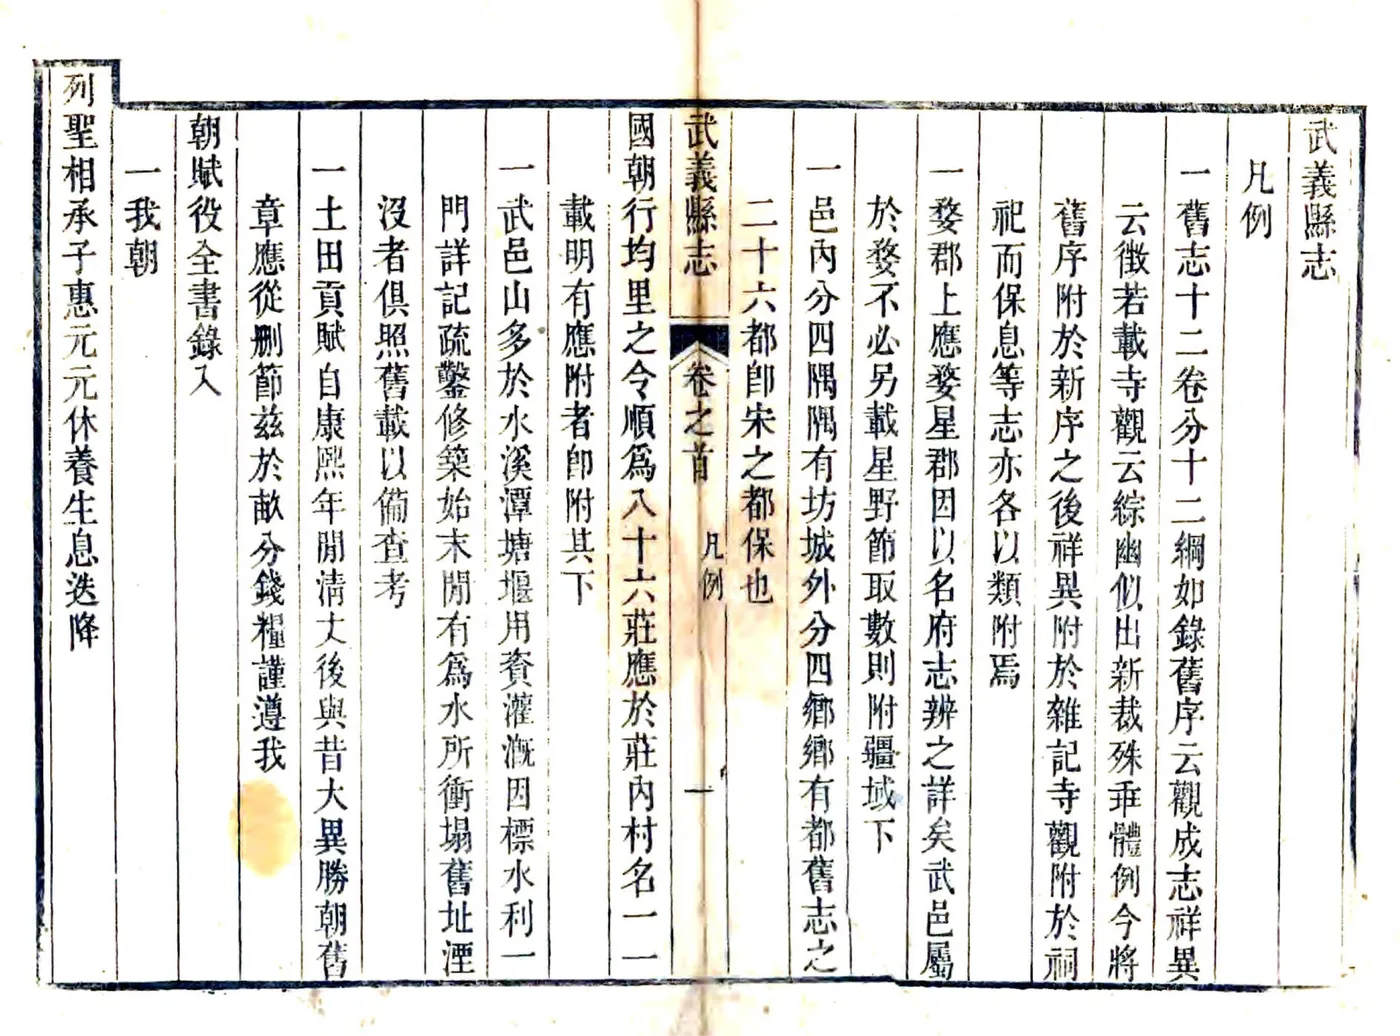 武義縣志
凡例
一舊志十二卷分十二綱如錄舊序云觀成志祥異
云徴若載寺觀云綜幽似出新裁殊乖體例今將
舊序附於新序之後祥異附於雜記寺觀附於祠
祀而保息等志亦各以類附焉
一婺郡上應婺星郡因以名府志辨之詳矣武邑屬
於婺不必另載星野節取數則附疆域下
一邑內分四隅隅有坊城外分四鄉鄉有都舊志之
二十六都卽宋之都保也
武義縣志
卷之首
凡例
一
國朝行均里之令順爲八十六莊應於莊內村名一一
載明有應附者卽附其下
一武邑山多於水溪潭塘堰用資灌漑因標水利一
門詳記疏鑿修築始末閒有爲水所衝塌舊址湮
沒者俱照舊載以備查考
一土田貢賦自康熙年閒清丈後與昔大異勝朝舊
章應從刪節茲於畝分錢糧謹遵我
朝賦役全書錄入
一我朝
列聖相承子惠元元休養生息迭降